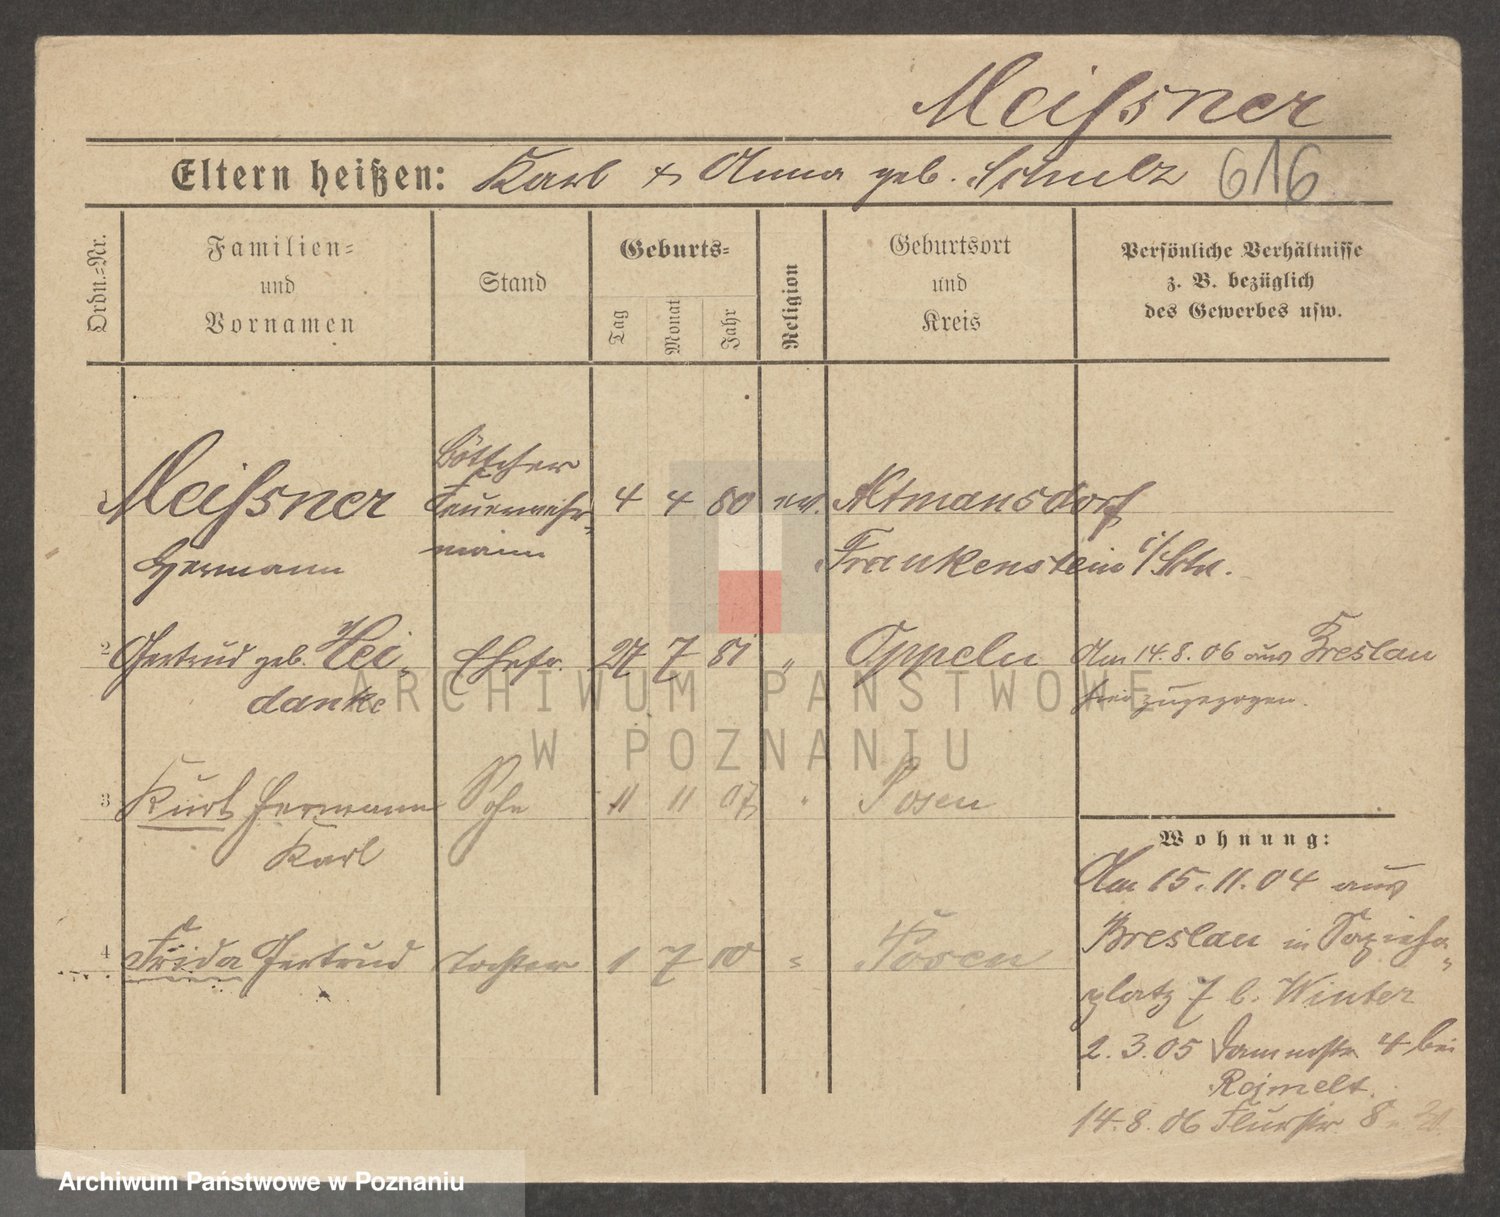 Meißner
Eltern heißen: Karl + Anna geb. Schulz 616
Ordn.-Nr.
Familien-
und
Vornamen
Stand
Geburts-
Tag
Monat
Jahr
Religion
Geburtsort
und
Kreis
Persönliche Verhältnisse
z. B. bezüglich
des Gewerbes usw.
1 Meißner
Hermann
Böttcher
Feuerwehr-
mann
4 4 80 ev. Altmansdorf
Frankenstein i/Schl.
2 Gertrud geb. Hei-
danke
Ehefr. 27 7 81 " Oppeln
Am 14.8.06 aus Breslau
hier zugezogen.
3 Kurt Hermann
Karl
Sohn 11 11 07 " Posen
4 Frida Gertrud Tochter 1 7 10 " Posen
Wohnung:
Am 15.11.04 aus
Breslau in Sapieha-
platz 7 b. Winter
2.3.05 Dammstr. 4 bei
14.8.06 Flurstr. 8
ARCHIWUM PAŃSTWOWE
W POZNANIU
Archiwum Państwowe w Poznaniu